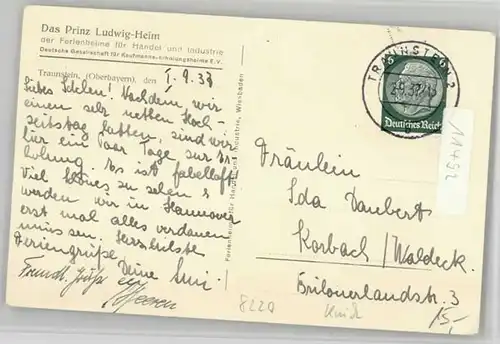 Das Prinz Ludwig-Heim
der Ferienheime für Handel und Industrie
Deutsche Gesellschaft für Kaufmanns-Erholungsheime E.V.
Traunstein, (Oberbayern), den 1.9.37
Liebes Idelein! Nachdem wir
einen sehr netten Hoch-
zeitstag hatten, sind wir
für ein Paar Tage zur Er-
holung. Es ist fabelhaft
Viel schönes zu sehen &
werden wir in Hannover
erst mal alles verdauen
müssen. Herzlichste
Feriengrüße Deine
Freundl. Grüße
Ferienheime für Handel und Industrie, Wiesbaden
TRAUNSTEIN 2
5
Deutsches Reich
11452
Fräulein
Ida Daubert
Korbach/Waldeck.
Brilonerlandstr. 3
8220
15,-